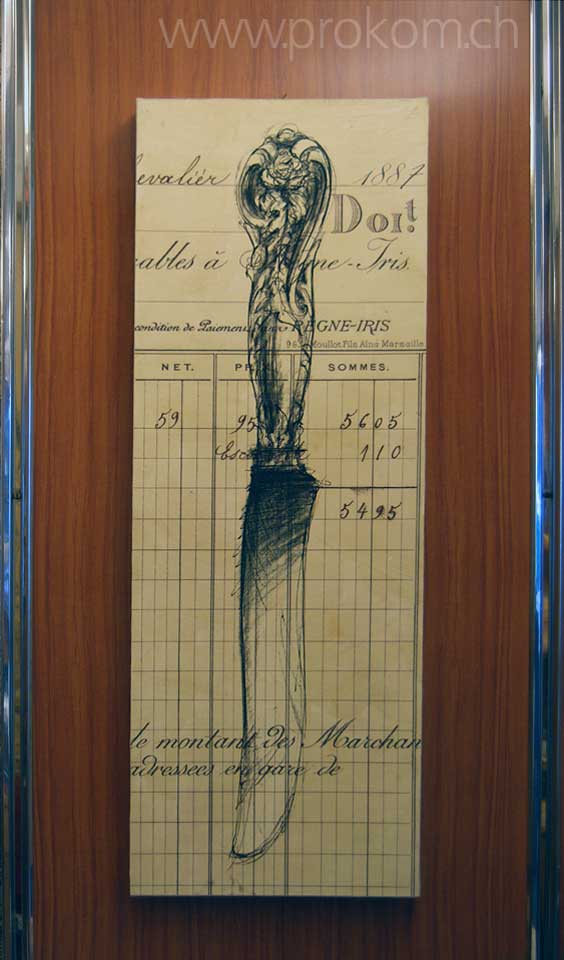 www.prokom.ch
evalier 1887
Doi.t
ables à S ne-Iris.
condition de Paiement REGNE-IRIS
Moullot Fils Aîné Marseille
NET. PR SOMMES.
59 95 5605
Esc 110
5495
le montant des Marchan
adressees en gare de